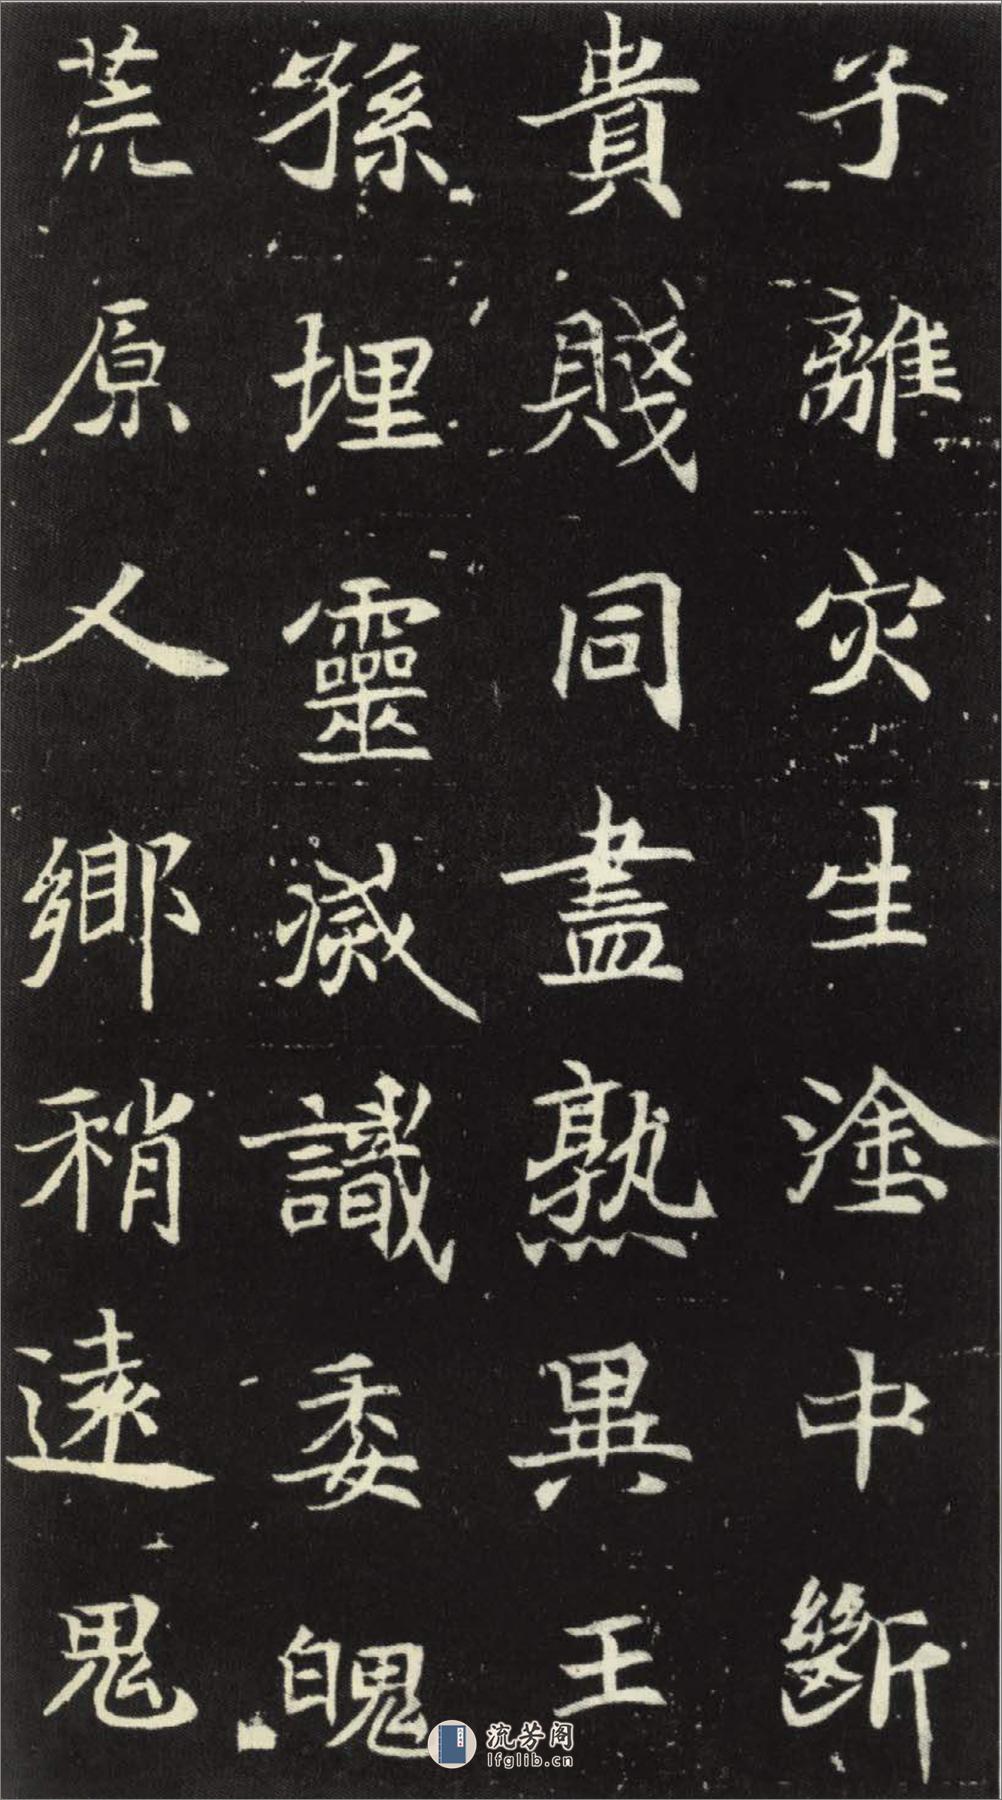 子離灾生塗中斷
貴賤同盡孰異王
孫埋靈滅識委魄
荒原人鄉稍遠鬼
流芳阁
lfglib.cn